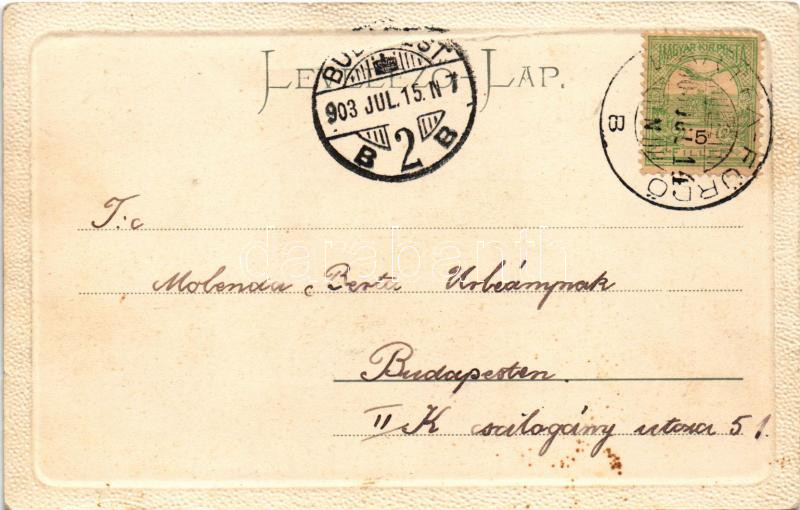 LEVELEZŐ-LAP.
BUDAPEST.
903 JUL. 15. N 7
B 2 B
MAGYAR KIR. POSTA
5
FÜRDŐ
B
T: c
Molenda Berta Urleánynak
Budapesten.
II K csalogány utcza 51.
databanth